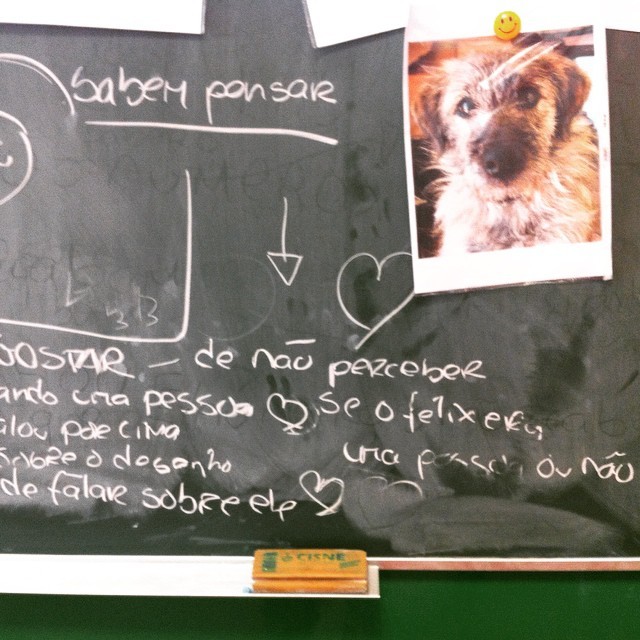 Sabem pensar
GOSTAR — de não perceber
ando uma pessoa se o felix era
alou por cima uma pessoa ou não
sobre o desenho
de falar sobre ele
CISNE